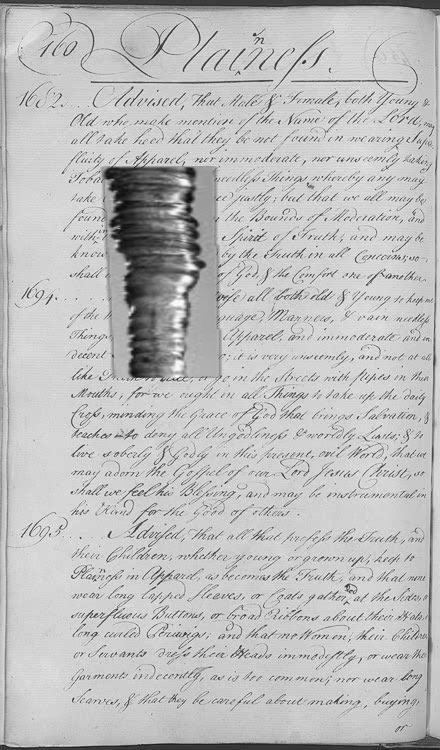 160 Plainness.
1682... Advised, That Male & Female, both Young &
Old who make mention of the Name of the Lord, may
all take heed that they be not found in wearing Super
fluity of Apparel, nor immoderate, nor unseemly taking
Toba needless Things whereby any may
take justly; but that we all may be
foun the Bounds of Moderation, and
with Spirit of Truth; and may be
know by the Truth in all Concerns; so
shall of God, & the Comfort one of another.
1694... all both old & Young to keep
of the guage, Manners, & vain needless
Things Apparel; and immoderate and in
decent it is very unseemly, and not at all
like go in the Streets with pipes in their
Mouths; for we ought in all Things to take up the daily
Cross, minding the Grace of God that brings Salvation, &
teaches to deny all Ungodliness & worldly Lusts; & to
live soberly & Godly in this present, evil World, that we
may adorn the Gospel of our Lord Jesus Christ, so
shall we feel his Blessing, and may be instrumental in
his Hand for the Good of others.
1695... Advised, That all that profess the Truth, and
their Children, whether young or grown up, keep to
Plainness in Apparel, as becomes the Truth, and that none
wear long lapped Sleeves, or Coats gathered at the Sides, or
superfluous Buttons, or broad Ribbons about their Hats, or
long curled Periwigs; and that no Women, their Children
or Servants dress their Heads immodestly, or wear their
Garments indecently, as is too common; nor wear long
Scarves, & that they be careful about making, buying,
or